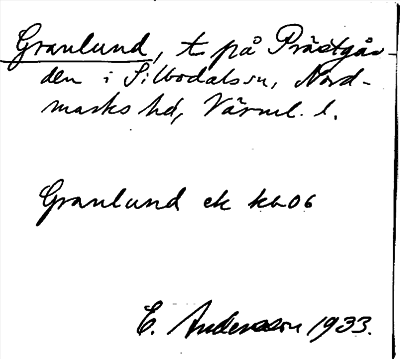 Granlund, t. på Prästgår-
den i Silbodals sn, Nord-
marks hd, Värml. l.
Granlund ek kh 06
E. Andersson 1933.